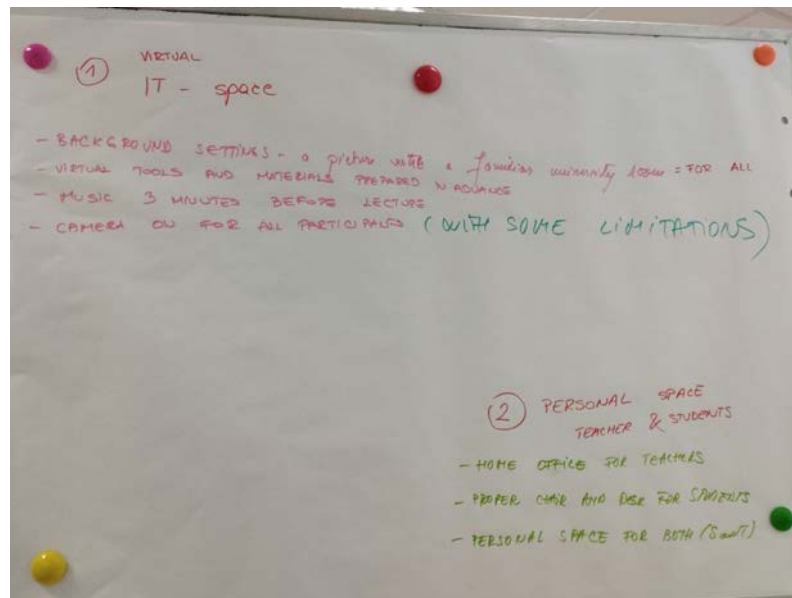 1 VIRTUAL
IT - space
- BACKGROUND SETTINGS - a picture with a familiar university = FOR ALL
- VIRTUAL TOOLS AND MATERIALS PREPARED IN ADVANCE
- MUSIC 3 MINUTES BEFORE LECTURE
- CAMERA ON FOR ALL PARTICIPANTS (WITH SOME LIMITATIONS)
2 PERSONAL SPACE
TEACHER & STUDENTS
- HOME OFFICE FOR TEACHERS
- PROPER CHAIR AND DESK FOR STUDENTS
- PERSONAL SPACE FOR BOTH (S and T)